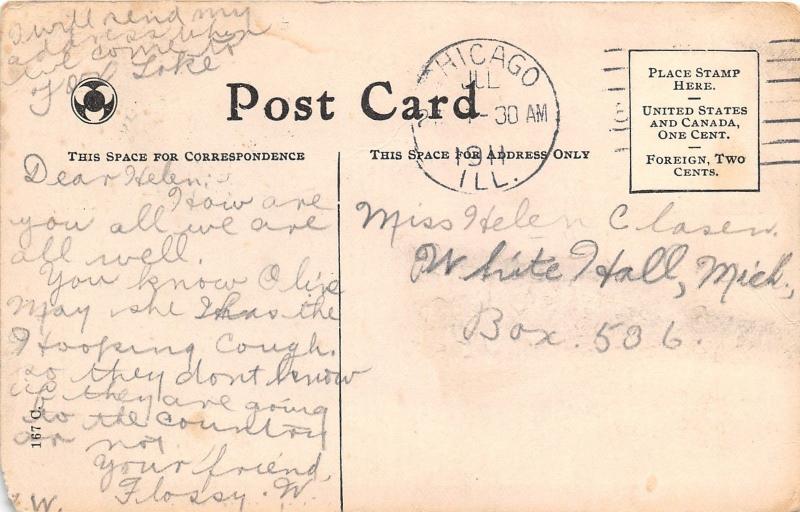 I will send my
address when
we come to
Lake
Post Card
CHICAGO
JUL
30 AM
1911
ILL.
PLACE STAMP
HERE.
UNITED STATES
AND CANADA,
ONE CENT.
FOREIGN, TWO
CENTS.
THIS SPACE FOR CORRESPONDENCE
THIS SPACE FOR ADDRESS ONLY
Dear Helen:
How are
you all we are
all well.
You know Olive
May she has the
Hooping Cough.
so they dont know
if they are going
to the country
or not
Your friend,
Flossy. W.
W.
167 C.
Miss Helen Clasen.
White Hall, Mich.,
Box. 536.